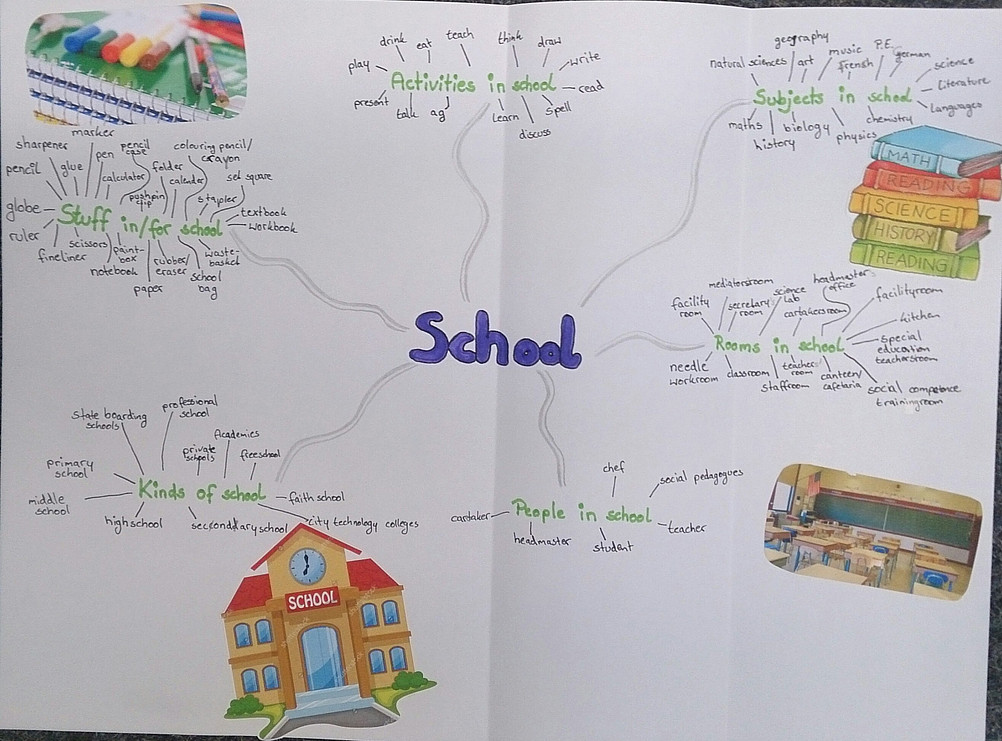 School
Activities in school
play
drink
eat
teach
think
draw
write
read
spell
discuss
learn
talk
present
Subjects in school
natural sciences
geography
art
music
frensh
P.E.
german
science
Literature
Languages
chemistry
physics
biology
history
maths
MATH
READING
SCIENCE
HISTORY
READING
Stuff in/for school
globe
pencil
sharpener
glue
marker
pen
calculator
pencil
case
pushpin
clip
folder
calender
colouring pencil/
crayon
stapler
set square
textbook
workbook
waste-
basket
school
bag
rubber/
eraser
paper
paint-
box
notebook
scissors
fineliner
ruler
Rooms in school
facility
room
mediatorsroom
secretary
room
science
lab
cartakersroom
headmaster
office
facilityroom
kitchen
special
education
teachersroom
social competence
trainingroom
canteen/
cafetaria
teachers
room
staffroom
classroom
needle
workroom
Kinds of school
middle
school
primary
school
State boarding
schools
professional
school
private
schools
Academies
freeschool
faith school
city technology colleges
secconddary school
high school
SCHOOL
People in school
cartaker
chef
social pedagogues
teacher
student
headmaster